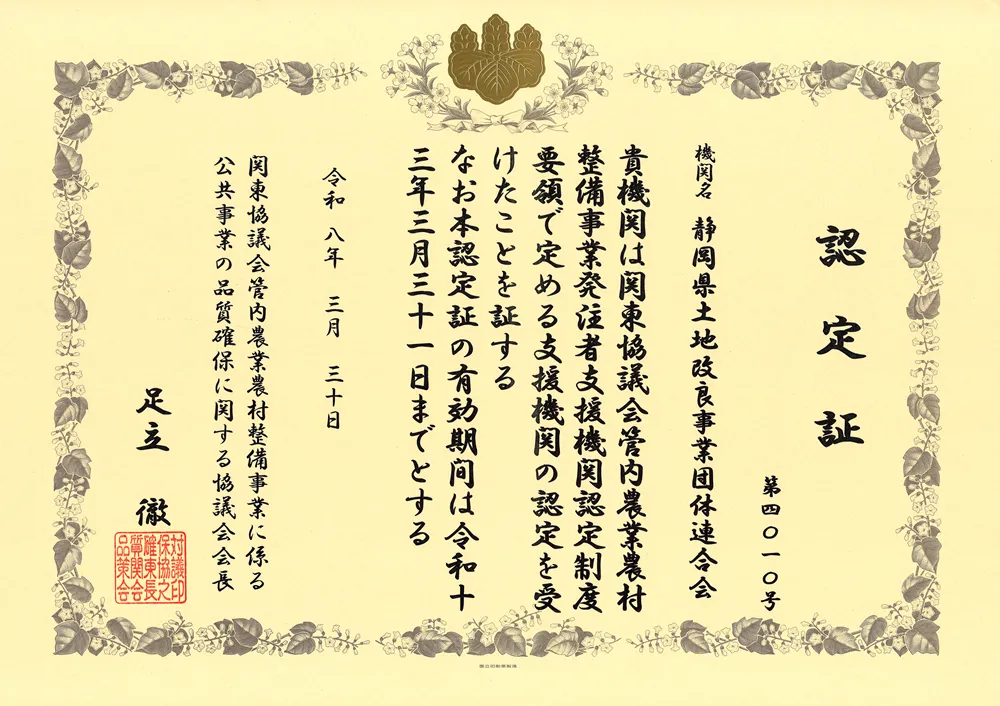 認定証
第四〇一一〇号
機関名 静岡県土地改良事業団体連合会
貴機関は関東協議会管内農業農村
整備事業発注者支援機関認定制度
要領で定める支援機関の認定を受
けたことを証する
なお本認定証の有効期間は令和十
三年三月三十一日までとする
令和 八年 三月 三十日
関東協議会管内農業農村整備事業に係る
公共事業の品質確保に関する協議会会長
足立 徹